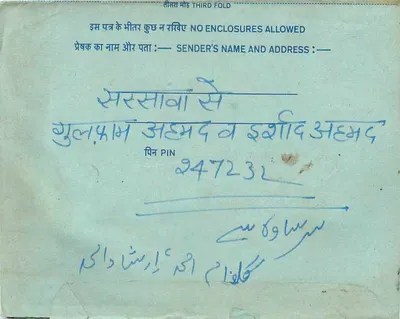 तीसरा मोड़ THIRD FOLD
इस पत्र के भीतर कुछ न रखिए NO ENCLOSURES ALLOWED
प्रेषक का नाम और पता :— SENDER'S NAME AND ADDRESS :—
सरसावा से
गुलफ़ाम अहमद व इर्शाद अहमद
पिन PIN
247232
سرساوہ سے
گلفام احمد ارشاد احمد